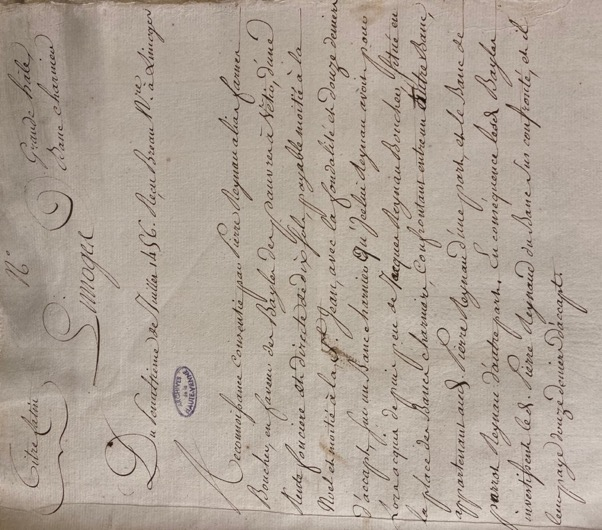 Titre latin
N°
Grande hâle
Banc charnier
Limoges
Du Neuvième de Juillet 1456. Reçu Breau Nre. à Limoges
Reconnoissance Consentie par Pierre Reynau alias farne
Boucher en faveur des Bayles des pauvres à Vêtir, d'une
Rente fonciere et directe de dix sols payable moitié à la
Noel et moitié à la St. Jean, avec la fondalité et douze deniers
d'accapt, sur un Banc charnier qu'icelui Reynau avoit pour
lors acquis de nouveau de Jacques Reynau Boucher, situé en
la place des Bancs charniers, Confrontant entre un autre Banc,
appartenant aud. Pierre Reynaud d'une part, et le Banc de
parrot Reynau d'autre part. En conséquence lesd. Bayles
investissent led. Pierre Reynaud du Banc sus confronté, et il
leur paye douze deniers d'accapt.
ARCHIVES
de la
HAUTE-VIENNE